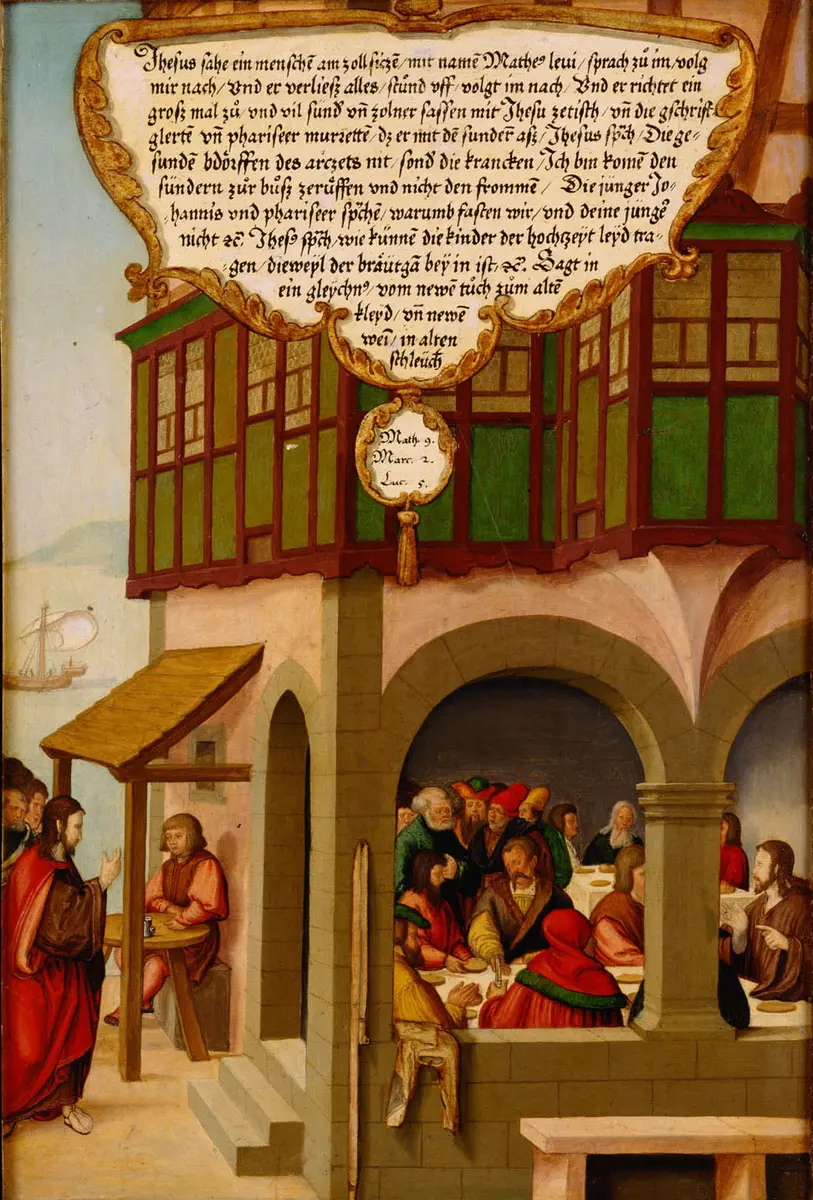 Jhesus sahe ein menschē am zoll sitzē / mit namē Matheꝰ levi / sprach zů im / volg
mir nach / Vnd er verliesz alles / stůnd vff / volgt im nach / Vnd er richtet ein
grosz mal zů / vnd vil sund͛ vñ zolner sassen mit Jhesu zetisch / vñ die gschrift
glertē vñ phariseer murrettē / dz er mit dē sundern̄ asz / Jhesus sp͛ch / Die ge-
sundē bdörffen des arczets nit / sond͛ die krancken / Ich bin komē den
sündern zůr bůsz zerůffen vnd nicht den frommē / Die jünger Jo-
-hannis vnd phariseer sp͛chē / warumb fasten wir / vnd deine jung͛
nicht ⁊c. Jhesꝰ sp͛ch / wie künnē die kinder der hochzeyt leyd tra-
-gen / dieweyl der bräutgā beÿ in ist / ⁊c. Sagt in
ein gleÿchnꝰ / vom newē tůch zům altē
kleÿd / vñ newē
wein / in alten
schleüch
Math. 9.
Marc. 2.
Luc. 5.